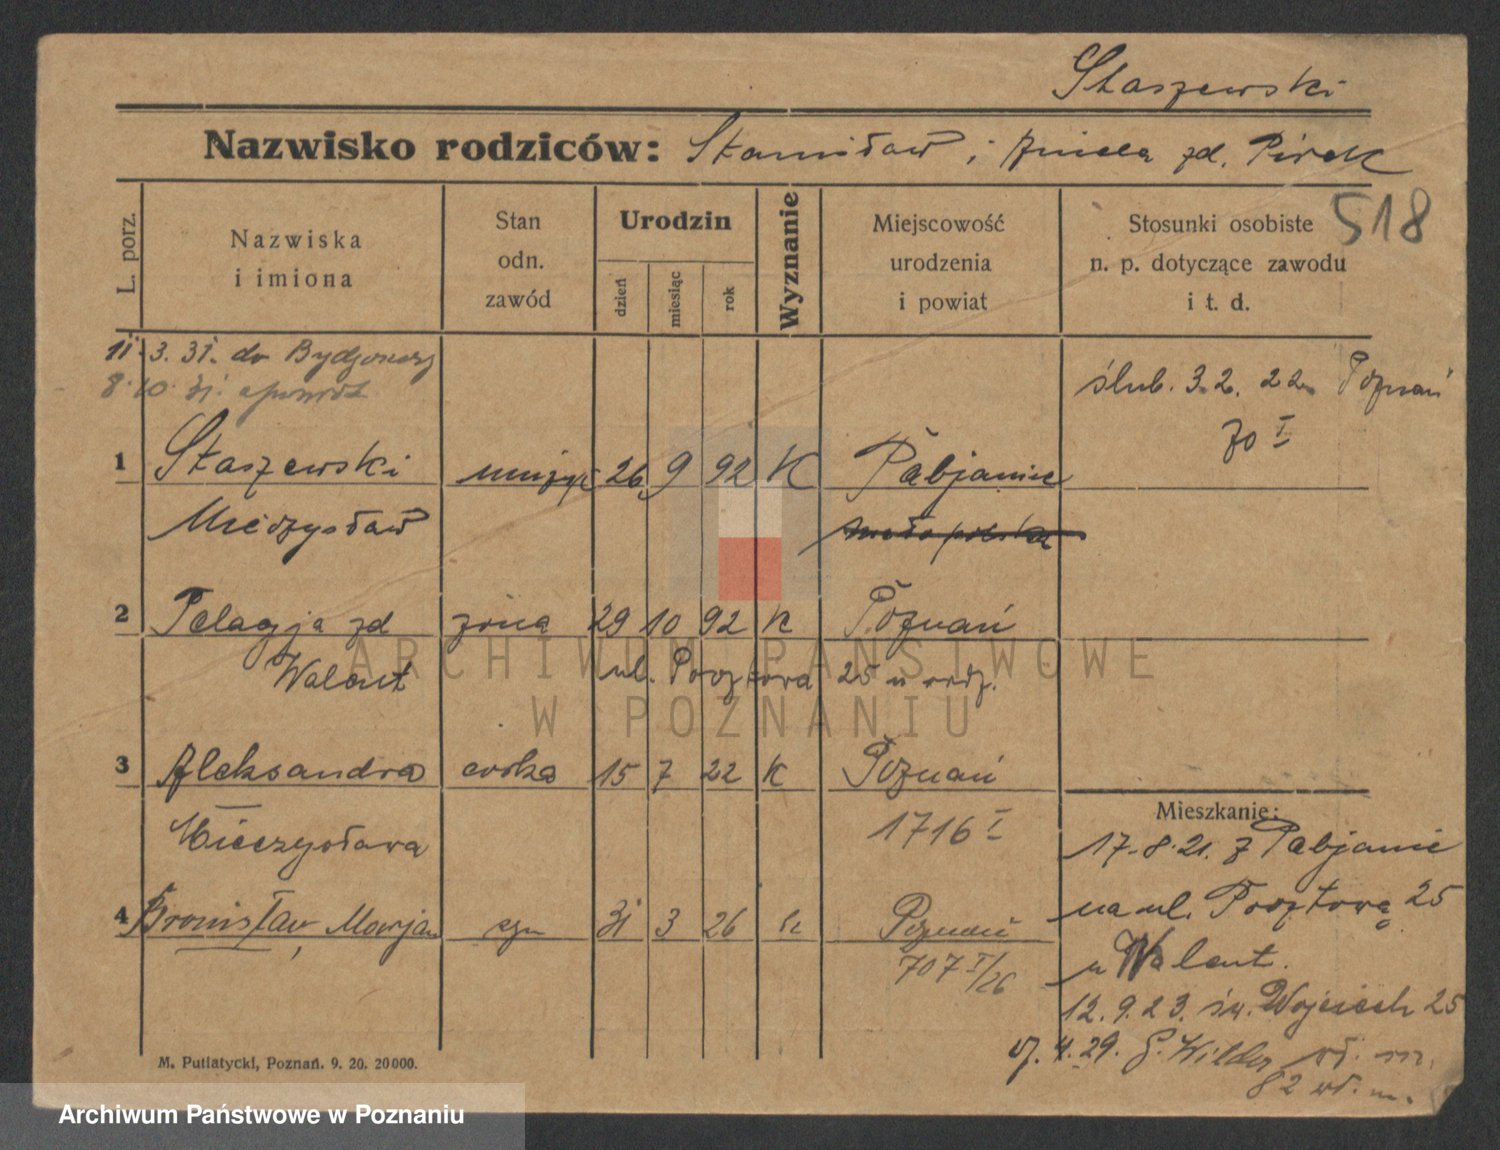 Staszewski
Nazwisko rodziców: Stanisław i Aniela zd. Pirek
518
L. porz.
Nazwiska
i imiona
Stan
odn.
zawód
Urodzin
dzień
miesiąc
rok
Wyznanie
Miejscowość
urodzenia
i powiat
Stosunki osobiste
n. p. dotyczące zawodu
i t. d.
11. 3. 31. do Bydgoszczy
8. 10. 31.
ślub. 3.2. 22 Poznań
70 I
1 Staszewski 26 9 92 K Pabjanice
Mieczysław
2 Pelagja zd żona 29 10 92 K Poznań
Walent ul. Pocztowa 25 u rodz.
3 Aleksandra córka 15 7 22 K Poznań
Mieczysława 1716 I
4 Bronisław, Marjan syn 31 3 26 k Poznań
707 I/26
Mieszkanie:
17.8.21. z Pabjanic
na ul. Pocztową 25
u Walent.
12. 9. 23. św. Wojciech 25
4. 29. G. Wilda
82 wł. m.
M. Putiatycki, Poznań. 9. 20. 20000.
ARCHIWUM PAŃSTWOWE
W POZNANIU
Archiwum Państwowe w Poznaniu